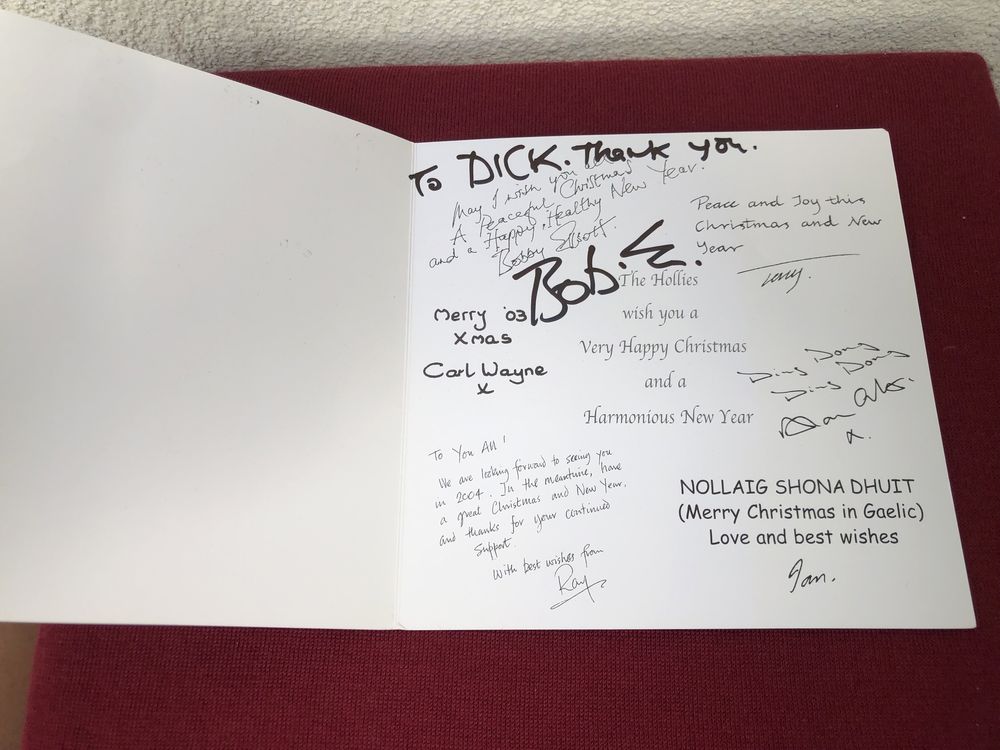 To DICK. Thank you.
May I wish you all
A Peaceful Christmas
and a Happy, Healthy New Year.
Bobby Elliott.
Bob. E.
Peace and Joy this
Christmas and New
Year
Terry.
Merry '03
Xmas
Carl Wayne
x
The Hollies
wish you a
Very Happy Christmas
and a
Harmonious New Year
Ding Dong
Ding Dong
Alan
x.
To You All!
We are looking forward to seeing you
in 2004. In the meantime, have
a great Christmas and New Year,
and thanks for your continued
support.
With best wishes from
Ray
NOLLAIG SHONA DHUIT
(Merry Christmas in Gaelic)
Love and best wishes
Ian.